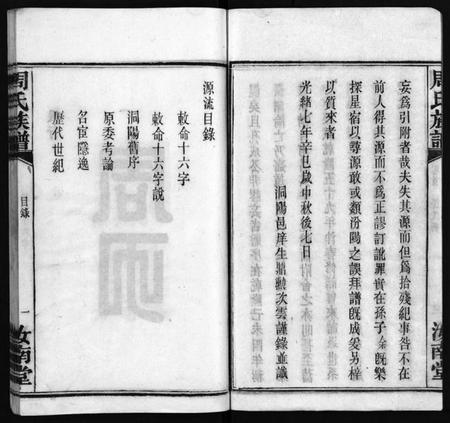 周氏族譜
妄爲引附者哉夫失其源而但爲拾殘紀事咎不在
前人得其源而不爲正謬訂訛罪實在孫子余旣樂
探星宿以尋源敢或類汾陽之誤拜譜旣成爰另梓
以質來者
光緒七年辛巳歲中秋後七日
洞陽邑庠生鼎勳次雲謹錄並識
汝南堂
周氏族譜
目錄
一
汝南堂
源流目錄
敕命十六字
敕命十六字說
洞陽舊序
原委考論
名宦隱逸
歷代世紀